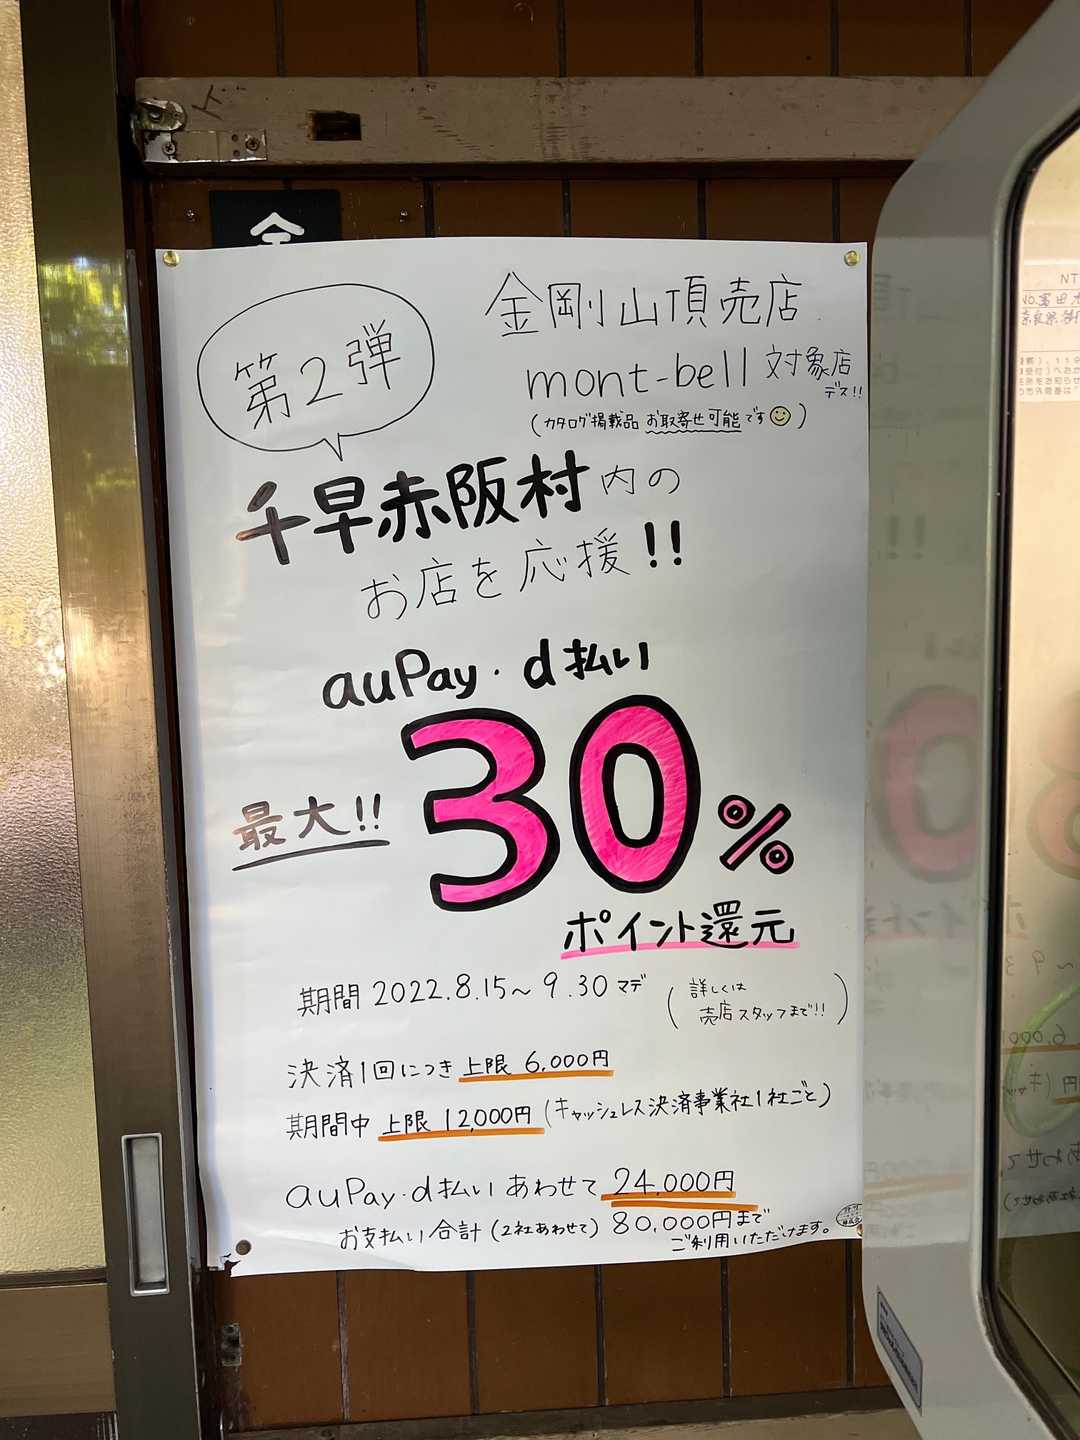 第2弾
金剛山頂売店
mont-bell 対象店デス!!
(カタログ掲載品 お取寄せ可能です)
千早赤阪村内の
お店を応援!!
auPay・d払い
最大!! 30%
ポイント還元
期間 2022.8.15〜9.30マデ
(詳しくは
売店スタッフまで!!)
決済1回につき上限 6,000円
期間中 上限 12,000円(キャッシュレス決済事業社1社ごと)
auPay・d払い あわせて 24,000円
お支払い合計(2社あわせて) 80,000円まで
ご利用いただけます。